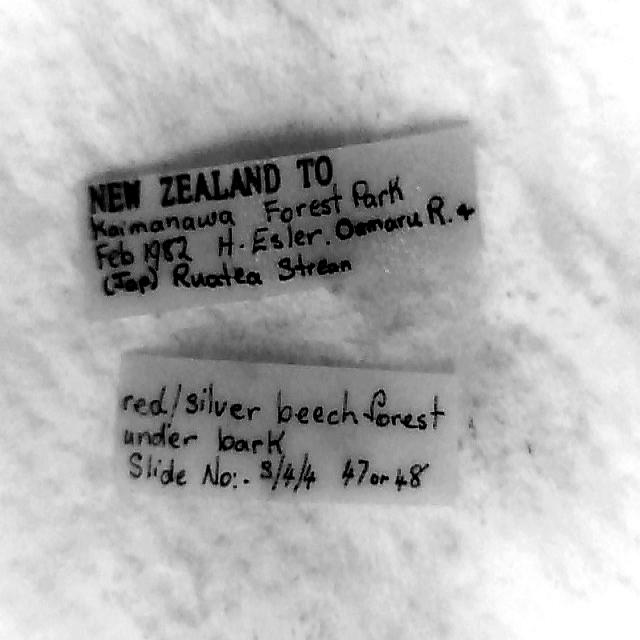 NEW ZEALAND TO
Kaimanawa Forest Park
Feb 1982 H. Esler. Oamaru R. +
(Jap) Ruatea Stream
red/silver beech forest
under bark
Slide No:. 3/4/4 47 or 48